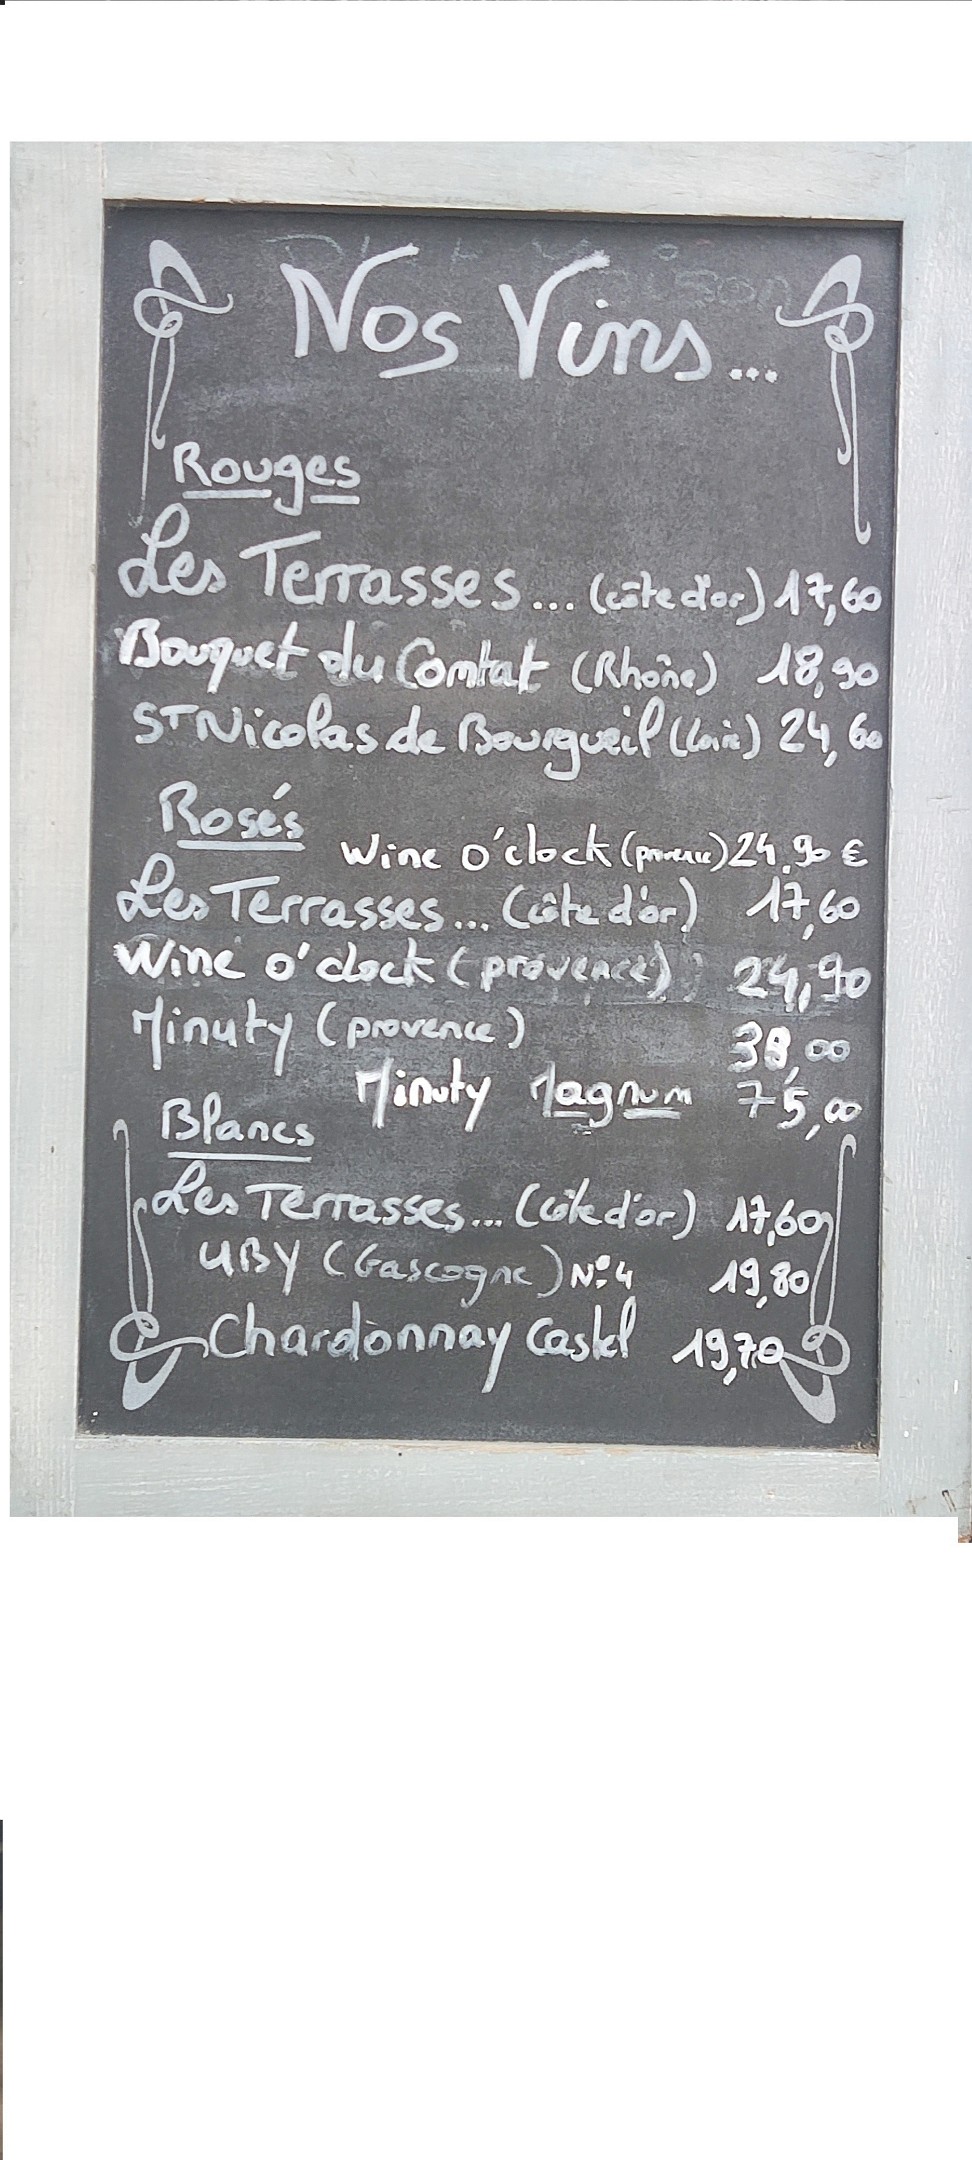 Nos Vins...
Rouges
Les Terrasses... (côte d'or) 17,60
Bouquet du Comtat (Rhône) 18,90
ST Nicolas de Bourgueil (Loire) 24,60
Rosés
Wine o'clock (provence) 24.90 €
Les Terrasses... (côte d'or) 17,60
Wine o'clock (provence) 24,90
Minuty (provence) 38,00
Minuty Magnum 75,00
Blancs
Les Terrasses... (côte d'or) 17,60
UBY (Gascogne) N°4 19,80
Chardonnay Castel 19,70